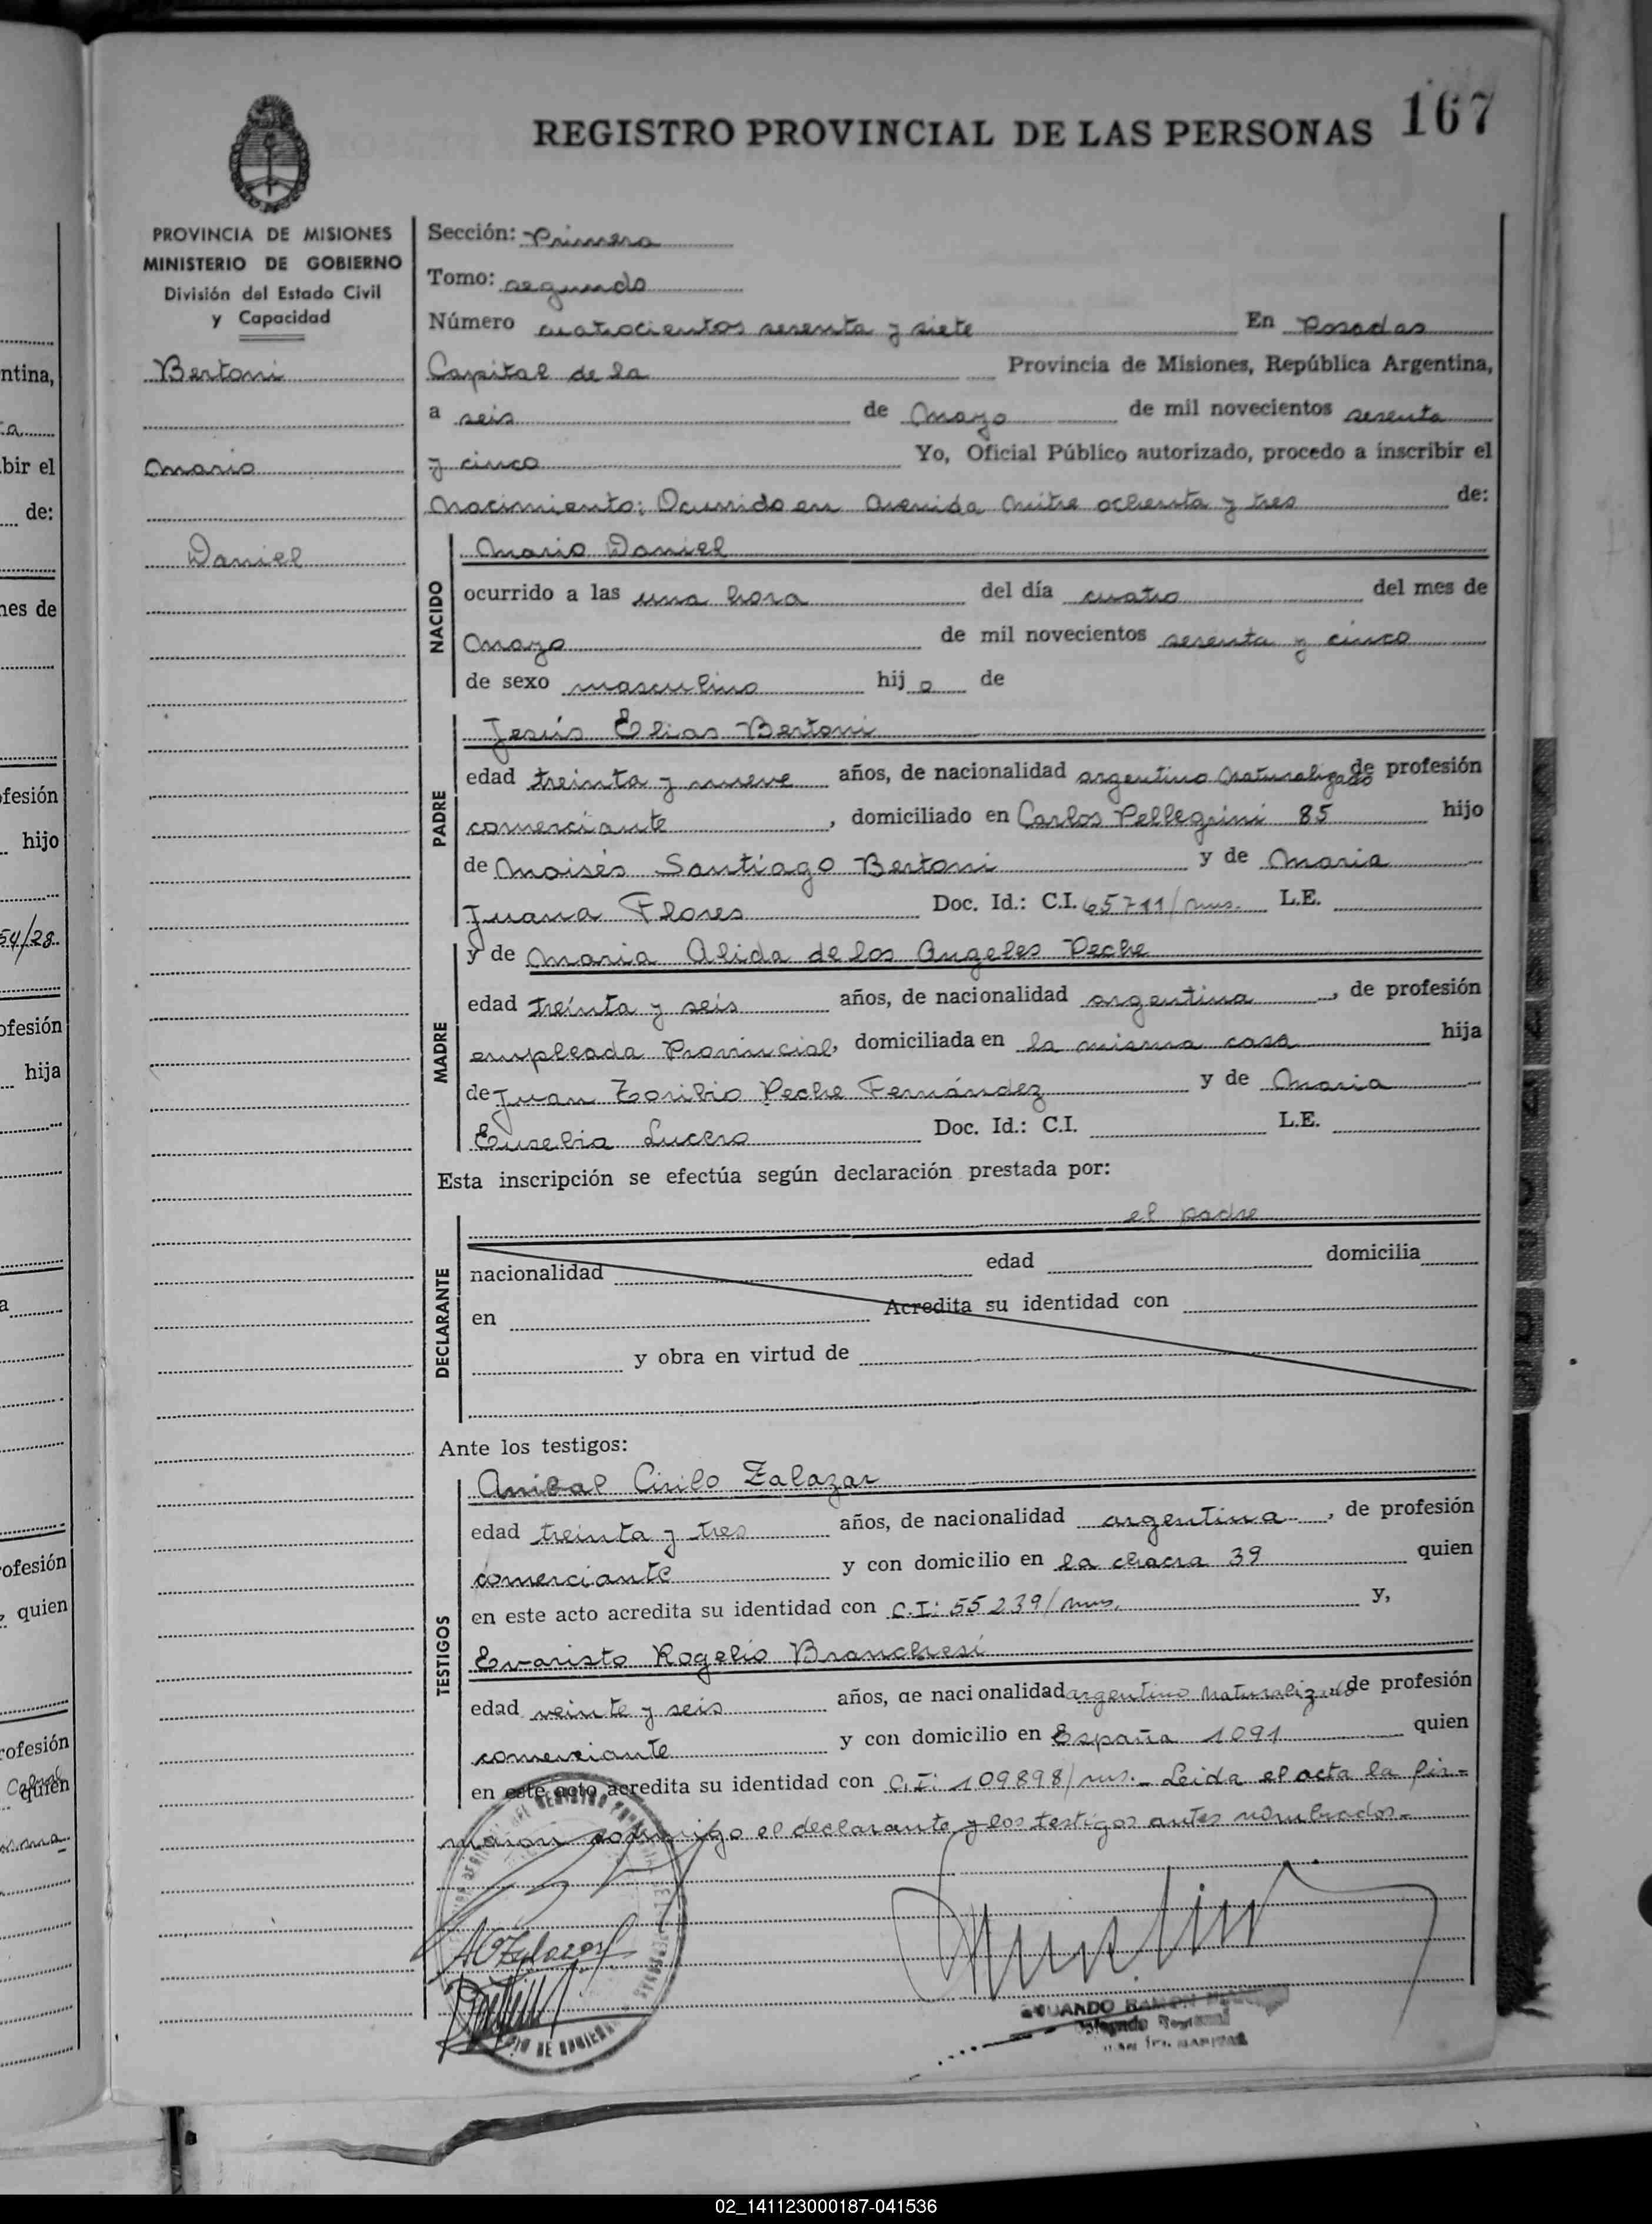 167
REGISTRO PROVINCIAL DE LAS PERSONAS
PROVINCIA DE MISIONES
MINISTERIO DE GOBIERNO
División del Estado Civil
y Capacidad
Bertoni
Mario
Daniel
Sección: Primera
Tomo: segundo
Número cuatrocientos sesenta y siete En Posadas
Capital de la Provincia de Misiones, República Argentina,
a seis de Mayo de mil novecientos sesenta
y cinco Yo, Oficial Público autorizado, procedo a inscribir el
Nacimiento: Ocurrido en Avenida Mitre ochenta y tres de:
NACIDO
Mario Daniel
ocurrido a las una hora del día cuatro del mes de
Mayo de mil novecientos sesenta y cinco
de sexo masculino hijo de
PADRE
Jesús Elias Bertoni
edad treinta y nueve años, de nacionalidad argentino Naturalizado de profesión
comerciante, domiciliado en Carlos Pellegrini 85 hijo
de Moisés Santiago Bertoni y de Maria
Juana Flores Doc. Id.: C.I. 65711/mns. L.E.
MADRE
y de Maria Alida de los Angeles Peche
edad treinta y seis años, de nacionalidad argentina, de profesión
empleada Provincial, domiciliada en la misma casa hija
de Juan Toribio Peche Fernández y de Maria
Eusebia Lucero Doc. Id.: C.I. L.E.
Esta inscripción se efectúa según declaración prestada por:
DECLARANTE
el padre
nacionalidad edad domicilia
en Acredita su identidad con
y obra en virtud de
Ante los testigos:
TESTIGOS
Anibal Cirilo Zalazar
edad treinta y tres años, de nacionalidad argentina, de profesión
comerciante y con domicilio en la chacra 39 quien
en este acto acredita su identidad con C.I: 55239/mns. y,
Evaristo Rogelio Branchesi
edad veinte y seis años, de nacionalidad argentino Naturalizado de profesión
comerciante y con domicilio en España 1091 quien
en este acto acredita su identidad con C.I: 109898/mns.- Leida el acta la fir=
maron conmigo el declarante y los testigos antes nombrados.-
02_141123000187-041536